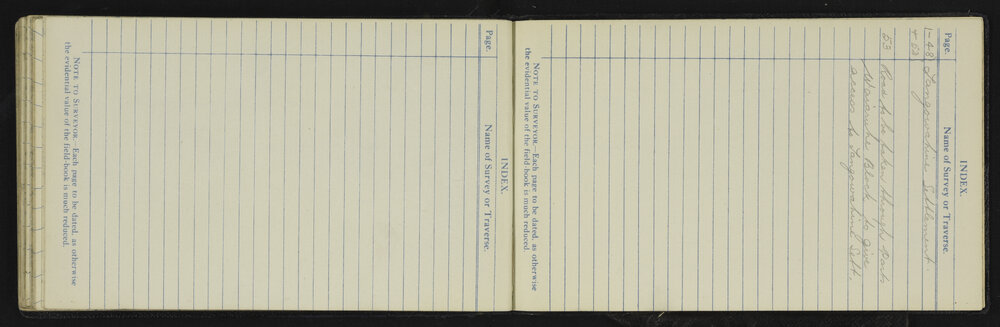 INDEX.
Page. Name of Survey or Traverse.
1-48 Tangowahine Settlement.
+ 52
53 Road to be taken through Parts
Block to give
access to Tangowahine Sett.
NOTE TO SURVEYOR.—Each page to be dated, as otherwise
the evidential value of the field-book is much reduced.
INDEX.
Page. Name of Survey or Traverse.
NOTE TO SURVEYOR.—Each page to be dated, as otherwise
the evidential value of the field-book is much reduced.